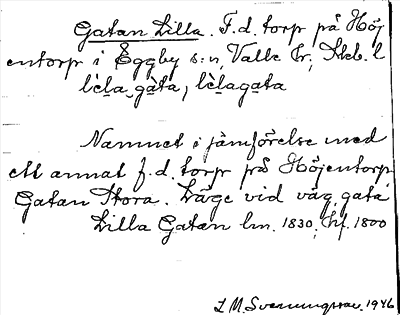 Gatan Lilla. F.d. torp på Höj
entorp i Eggby s:n, Valle hr; Skb. l
lìla gàta, lìlagata
Namnet i jämförelse med
ett annat f.d. torp på Höjentorp
Gatan Stora. Läge vid väg, gata
Lilla Gatan lm. 1830, hf. 1800
L M. Svenungsson. 1946